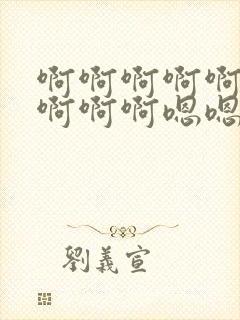 啊啊啊啊啊
啊啊啊嗯嗯
劉義宣